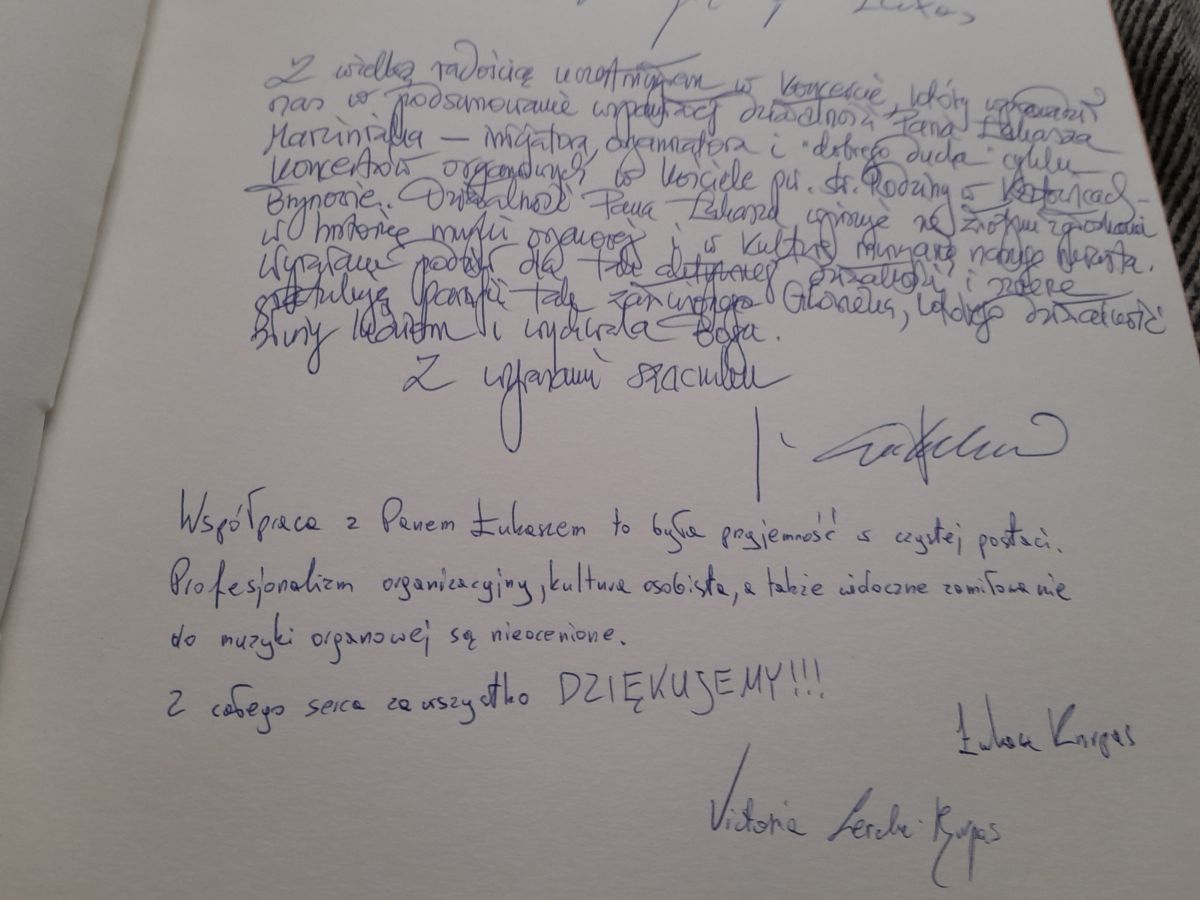 Z wielką radością uczestniczyłem w koncercie, który wprowadził
nas w podsumowanie wspaniałej działalności Pana Łukasza
Marciniaka – inicjatora, organizatora i "dobrego ducha" cyklu
koncertów organowych w kościele pw. św. Rodziny w Katowicach-
Brynowie. Działalność Pana Łukasza wpisuje się złotymi zgłoskami
w historię muzyki organowej i w kulturę muzyczną naszego miasta.
Wyrażam podziw dla tak aktywnej działalności i szczerze
gratuluję parafii tak Człowieka, którego działalność
służy ludziom i wychwala Boga.
Z wyrazami szacunku
Współpraca z Panem Łukaszem to była przyjemność w czystej postaci.
Profesjonalizm organizacyjny, kultura osobista, a także widoczne zamiłowanie
do muzyki organowej są nieocenione.
Z całego serca za wszystko DZIĘKUJEMY!!!
Łukasz
Victoria